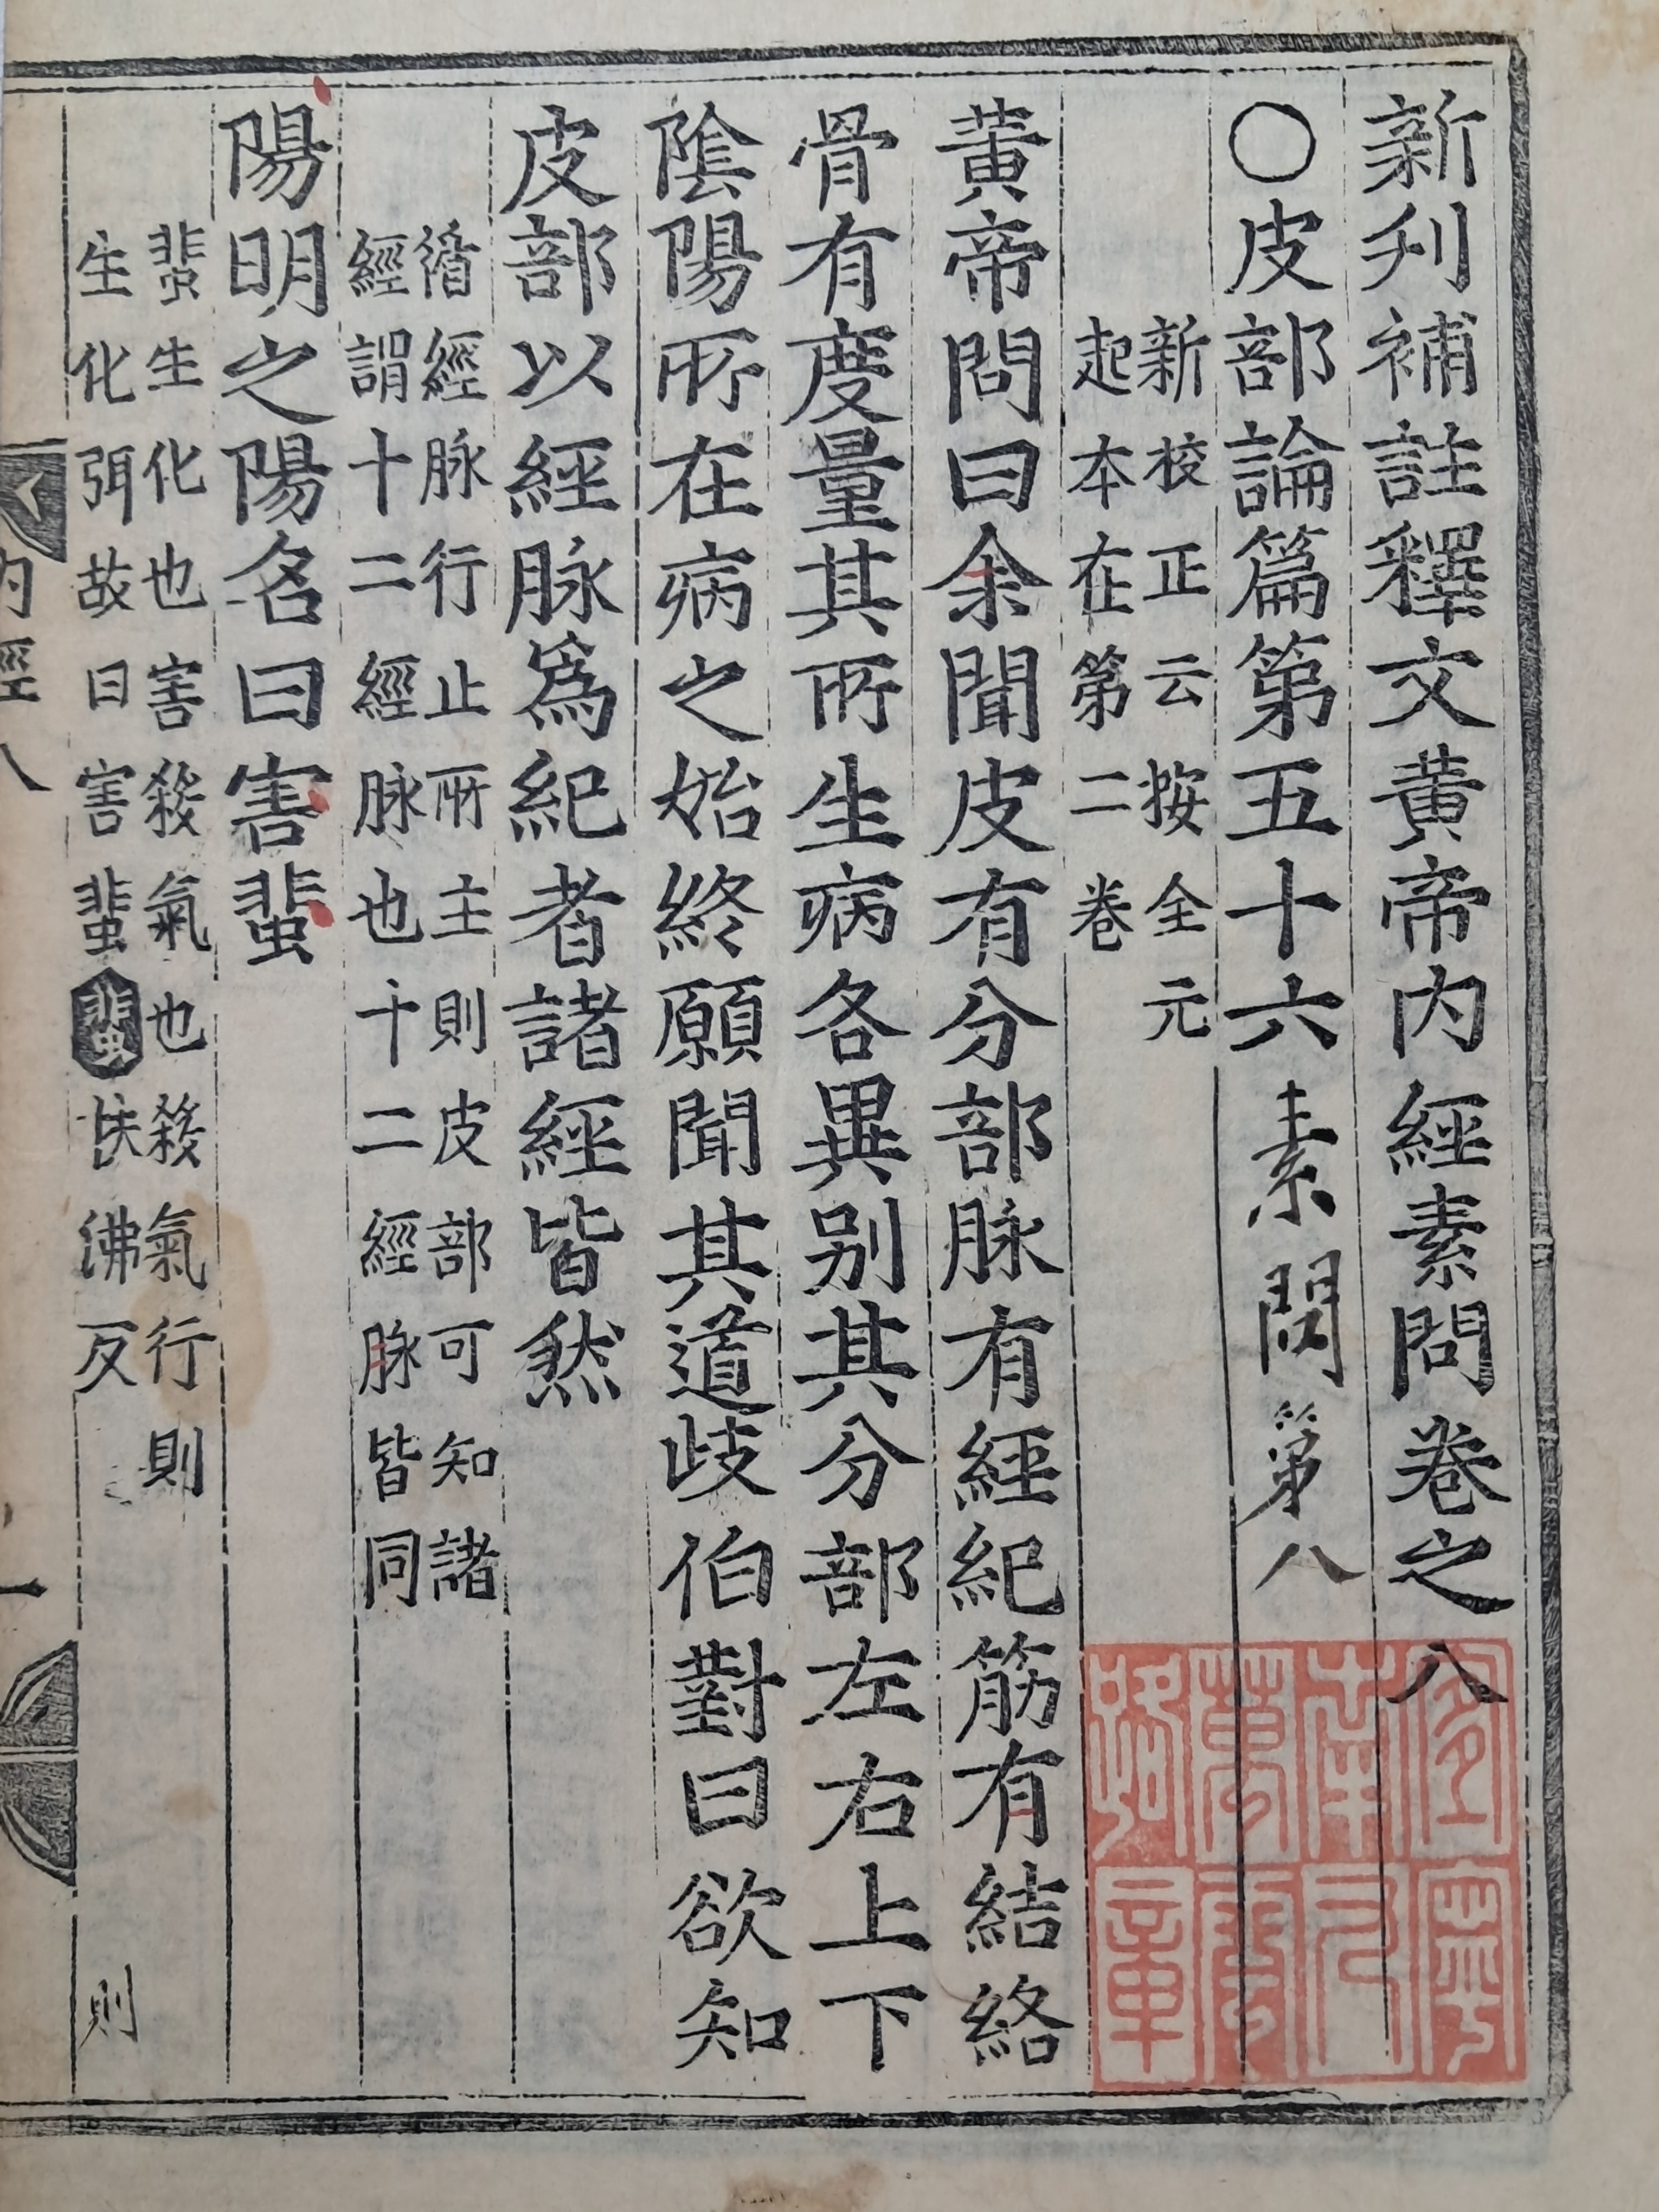 新刋補註釋文黃帝内經素問卷之八
○皮部論篇第五十六 素問第八
新校正云按全元
起本在第二卷
黃帝問曰余聞皮有分部脉有經紀筋有結絡
骨有度量其所生病各異别其分部左右上下
陰陽所在病之始終願聞其道歧伯對曰欲知
皮部以經脉爲紀者諸經皆然
循經脉行止所主則皮部可知諸
經謂十二經脉也十二經脉皆同
陽明之陽名曰害蜚
蜚生化也害殺氣也殺氣行則
生化弭故曰害蜚蜚扶沸反
則
内經八
一